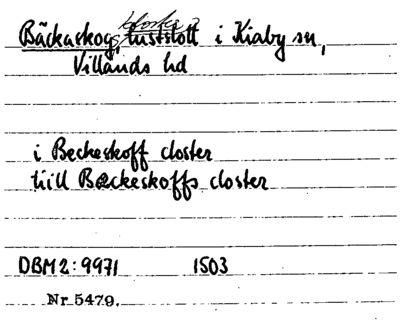 kloster
Bäckaskog, lustslott i Kiaby sn,
Villands hd
i Beckeskoff closter
till Bæckeskoffs closter
DBM2:9971 1503
Nr 5479.